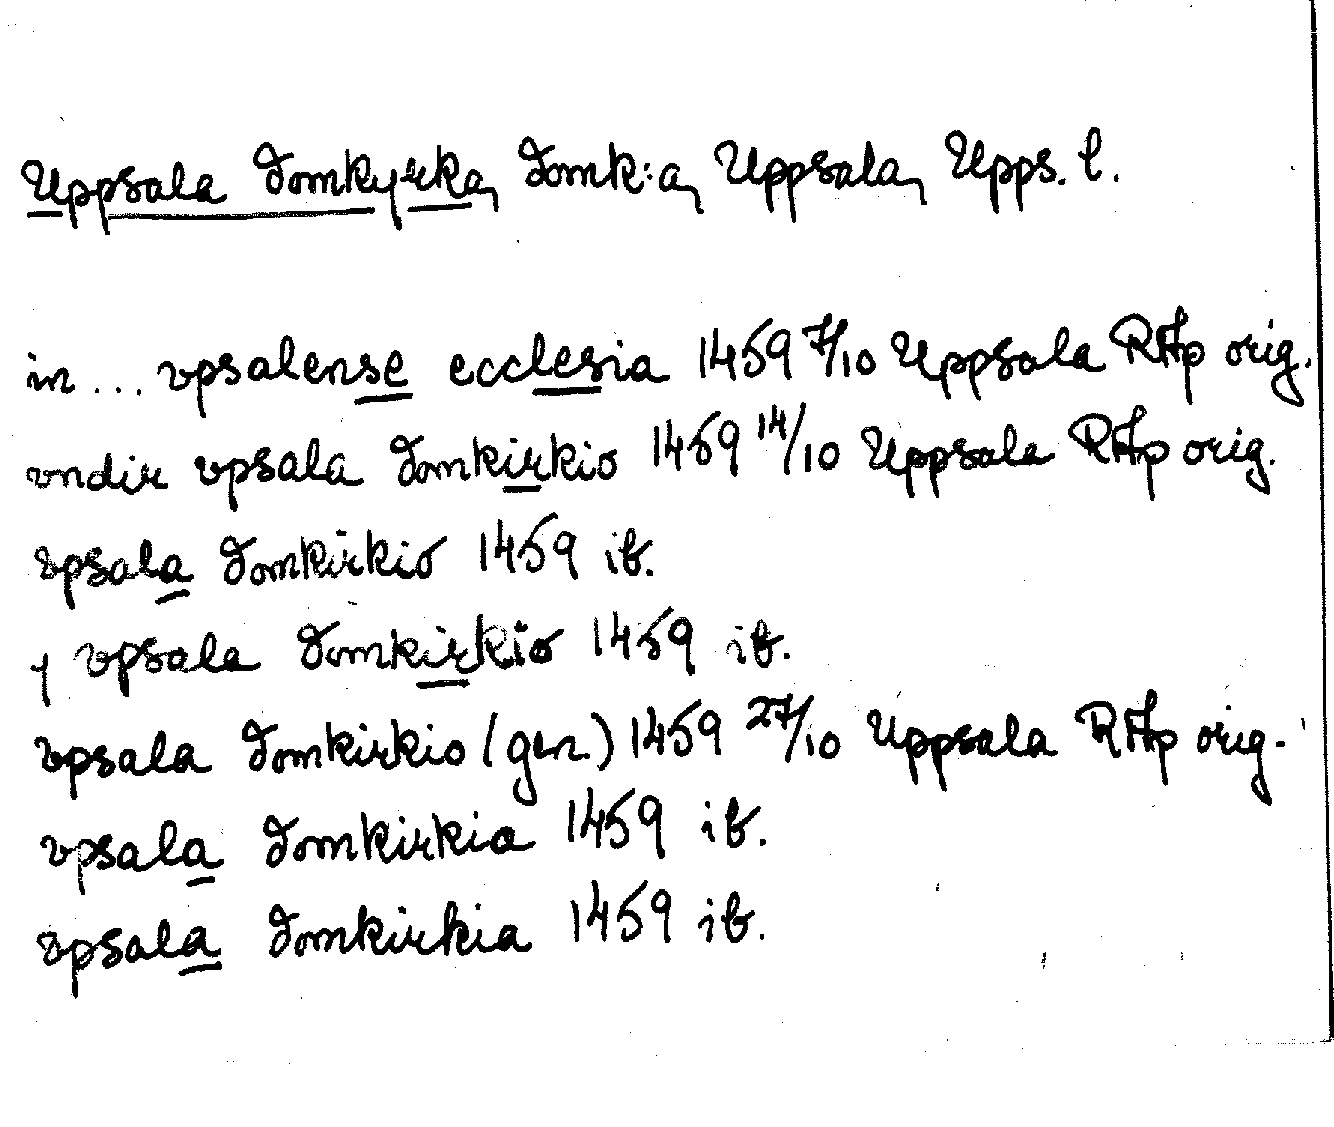 Uppsala domkyrka, domk:a, Uppsala, Upps. l.
in ... vpsalense ecclesia 1459 7/10 Uppsala RAp orig.
vndir vpsala domkirkio 1459 14/10 Uppsala RAp orig.
vpsala domkirkio 1459 ib.
y vpsala domkirkio 1459 ib.
vpsala domkirkio (gen.) 1459 27/10 Uppsala RAp orig.
vpsala domkirkia 1459 ib.
vpsala domkirkia 1459 ib.